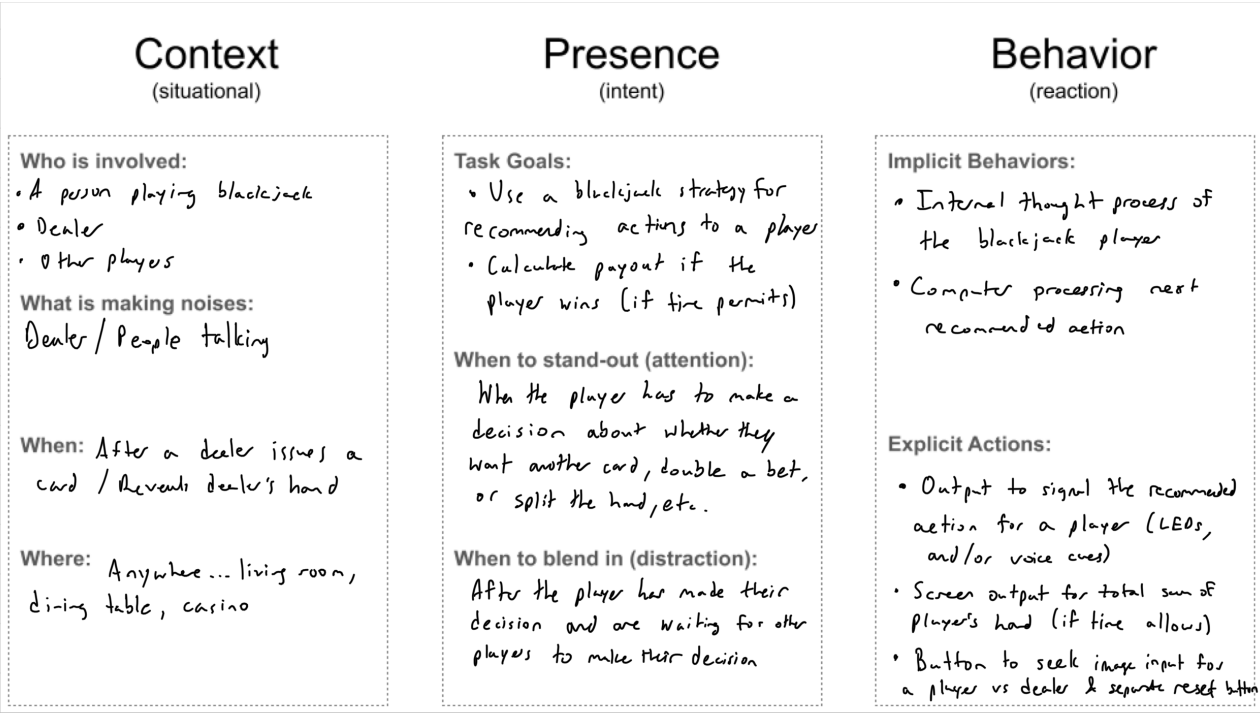 Context
(situational)
Who is involved:
• A person playing blackjack
• Dealer
• Other players
What is making noises:
Dealer / People talking
When: After a dealer issues a
card / Reveals dealer's hand
Where: Anywhere... living room,
dining table, casino
Presence
(intent)
Task Goals:
• Use a blackjack strategy for
recommending actions to a player
• Calculate payout if the
player wins (if time permits)
When to stand-out (attention):
When the player has to make a
decision about whether they
want another card, double a bet,
or split the hand, etc.
When to blend in (distraction):
After the player has made their
decision and are waiting for other
players to make their decision
Behavior
(reaction)
Implicit Behaviors:
• Internal thought process of
the blackjack player
• Computer processing next
recommended action
Explicit Actions:
• Output to signal the recommended
action for a player (LEDs,
and/or voice cues)
• Screen output for total sum of
player's hand (if time allows)
• Button to seek image input for
a player vs dealer & separate reset button